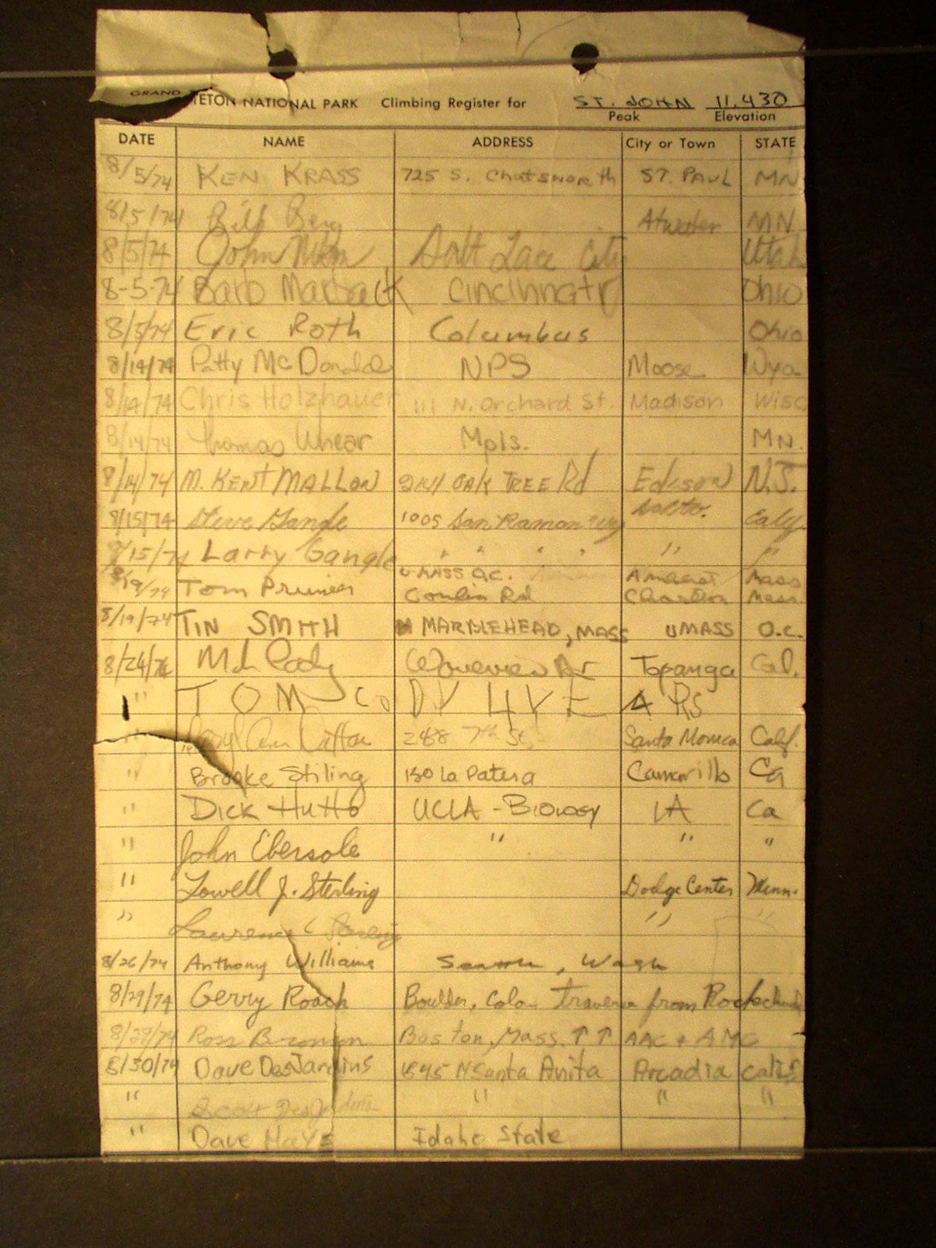 GRAND TETON NATIONAL PARK Climbing Register for ST. JOHN 11,430
Peak Elevation
DATE NAME ADDRESS City or Town STATE
8/5/74 KEN KRASS 725 S. Chatsworth ST. PAUL MN
8/5/74 Bill Berg Atwater MN
8/5/74 John Salt Lake City Utah
8-5-74 Barb Cincinnati Ohio
8/5/74 Eric Roth Columbus Ohio
8/14/74 Patty McDonald NPS Moose Wyo
8/14/74 Chris Holzhauer 111 N. Orchard St. Madison Wisc
8/14/74 Thomas Unear Mpls. MN.
8/14/74 M. KENT MALLON OAK TREE Rd Edison N.J.
8/15/74 Steve Gangle 1005 San Ramon Wy Calif
8/15/74 Larry Gangle " " " " " "
8/19/74 Tom UMASS O.C. Amherst Mass
Conlin Rd Charlton Mass.
8/19/74 TIN SMITH MARBLEHEAD, MASS UMASS O.C.
8/24/74 Topanga Cal.
" TOM CODY 4 YEARS
" Ann 288 7th St. Santa Monica Calif.
" Brooke Stiling 150 La Patera Camarillo Ca
" DICK HuTTo UCLA - Biology LA Ca
" John Ebersole " " "
" Lowell J. Sterling Dodge Center Minn.
" Laurence C Sterling " "
8/26/74 Anthony Williams , Wash
8/29/74 Gerry Roach Boulder, Colo - Traverse from Rockchuck
8/29/74 Ross Boston, Mass. ↑ ↑ AAC + AMC
8/30/74 Dave DesJardins 1545 N Santa Anita Arcadia Calif
" Scott DesJardins " " "
" Dave Hays Idaho State